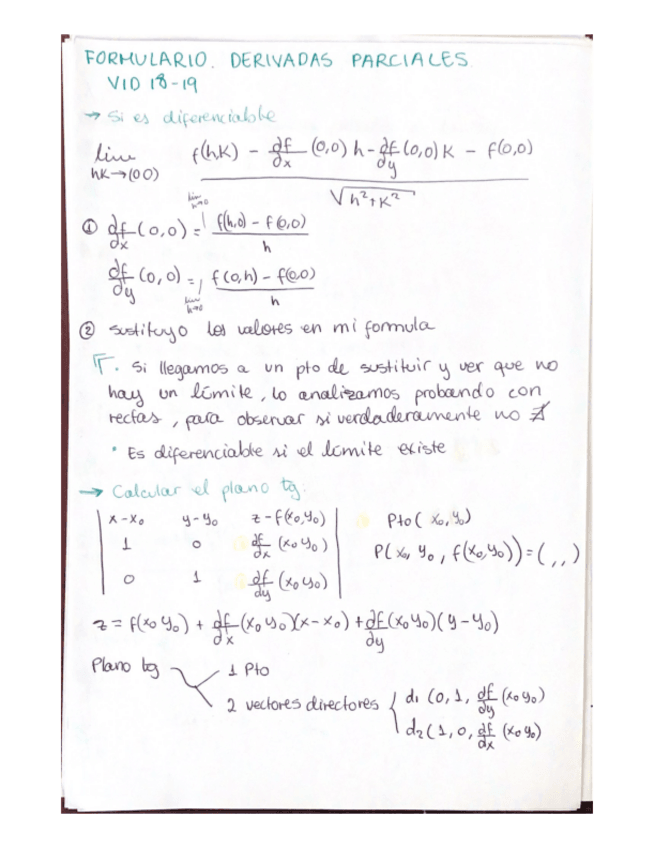 FORMULARIO. DERIVADAS PARCIALES
VID 18-19
→ Si es diferenciable
lim hK→(00) f(hK) − df/dx (0,0) h − df/dy (0,0) K − f(0,0) / √h²+K²
① df/dx (0,0) = lim h→0 f(h,0) − f(0,0) / h
df/dy (0,0) = lim h→0 f(0,h) − f(0,0) / h
② sustituyo los valores en mi formula
. Si llegamos a un pto de sustituir y ver que no
hay un límite, lo analizamos probando con
rectas, para observar si verdaderamente no ∄
• Es diferenciable si el límite existe
→ Calcular el plano tg.
| x−x₀ y−y₀ z−f(x₀,y₀) | Pto( x₀,y₀)
| 1 0 df/dx (x₀y₀) | P(x₀, y₀, f(x₀,y₀))=( , , )
| 0 1 df/dy (x₀y₀) |
z = f(x₀y₀) + df/dx (x₀y₀)(x−x₀) + df/dy (x₀y₀)(y−y₀)
Plano tg
1 Pto
2 vectores directores { d₁ (0,1, df/dy (x₀y₀)
d₂ (1,0, df/dx (x₀y₀)